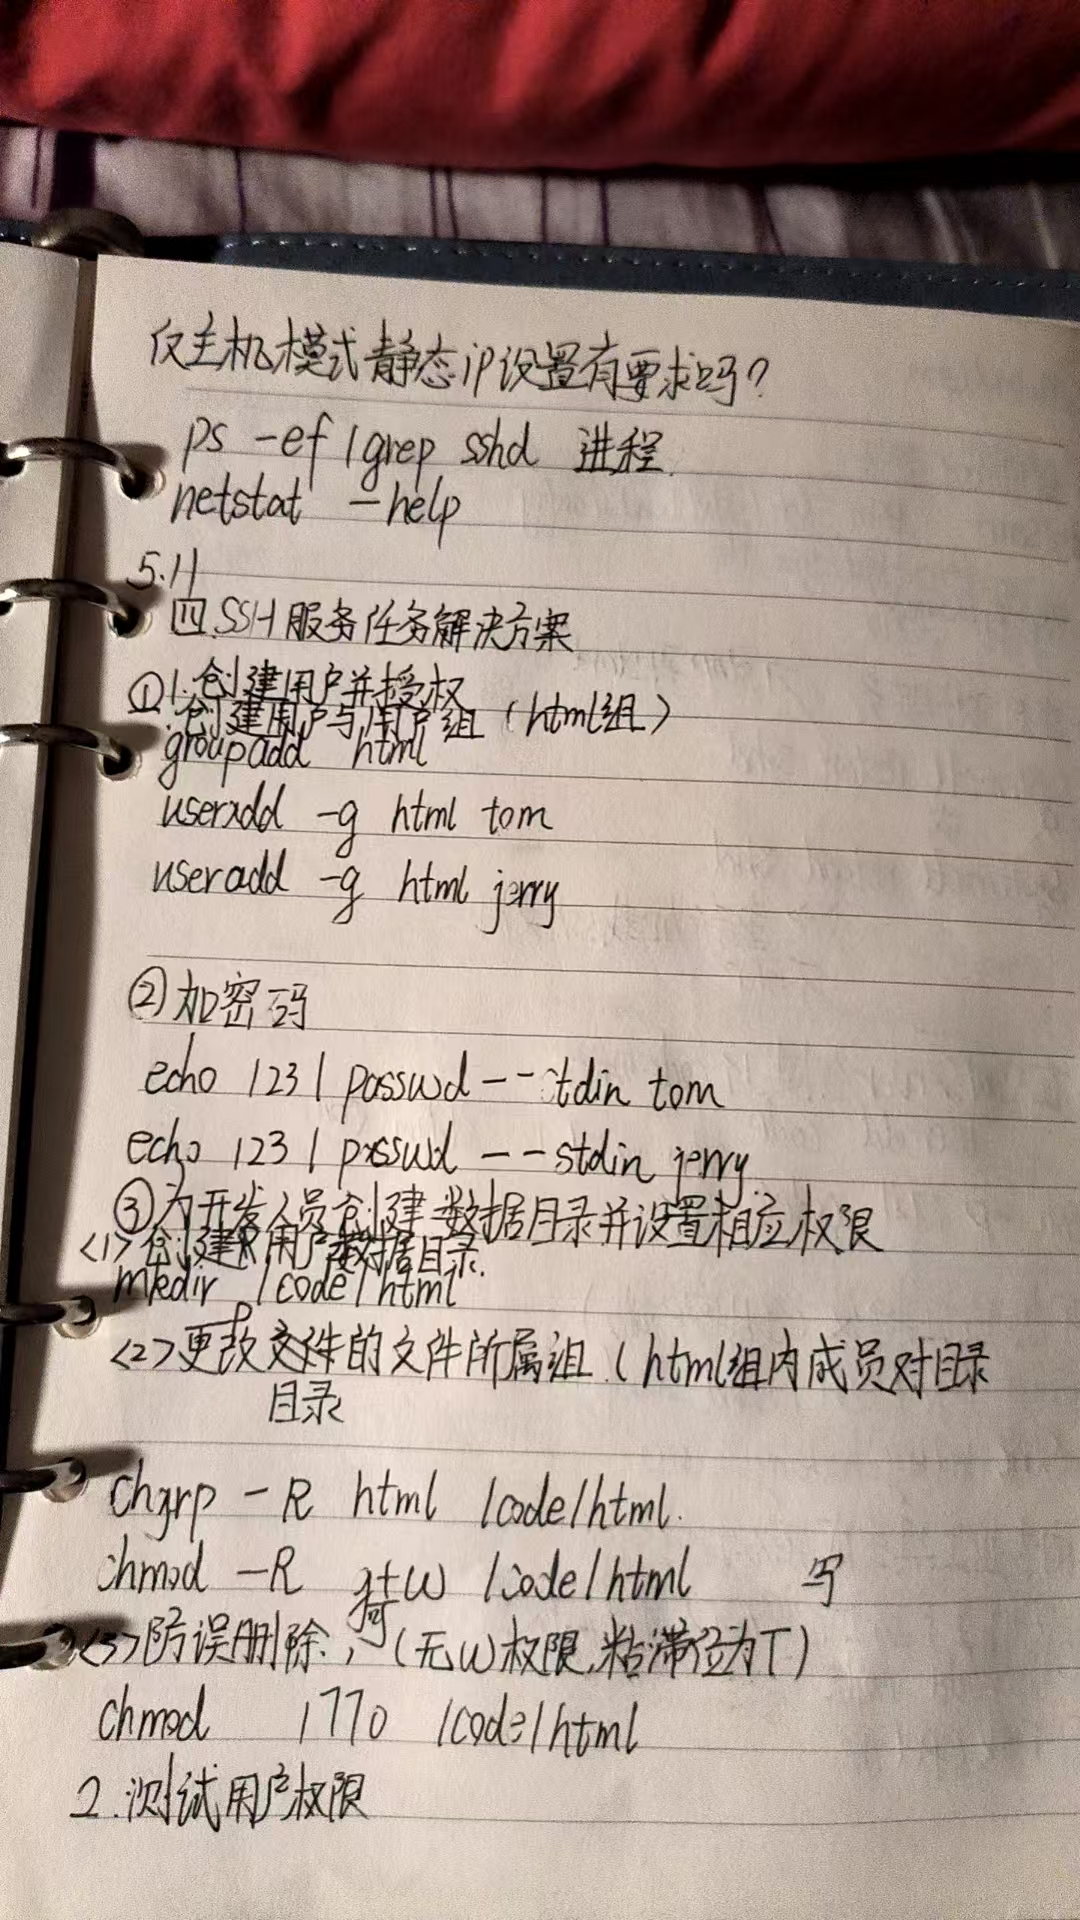 仅主机模式静态ip设置有要求吗?
ps -ef |grep sshd 进程
netstat -help
5.11
四.SSH服务任务解决方案
①1.创建用户并授权
创建用户与用户组(html组)
groupadd html
useradd -g html tom
useradd -g html jerry
②加密码
echo 123 | passwd --stdin tom
echo 123 | passwd --stdin jerry
③为开发人员创建数据目录并设置相应权限
<1>创建用户数据目录.
mkdir -p /code/html
<2>更改文件的文件所属组.(html组内成员对目录
目录
chgrp -R html /code/html.
chmod -R g+w /code/html 写
可
<3>防误删除,(无w权限,粘滞位为T)
chmod 1770 /code/html
2.测试用户权限